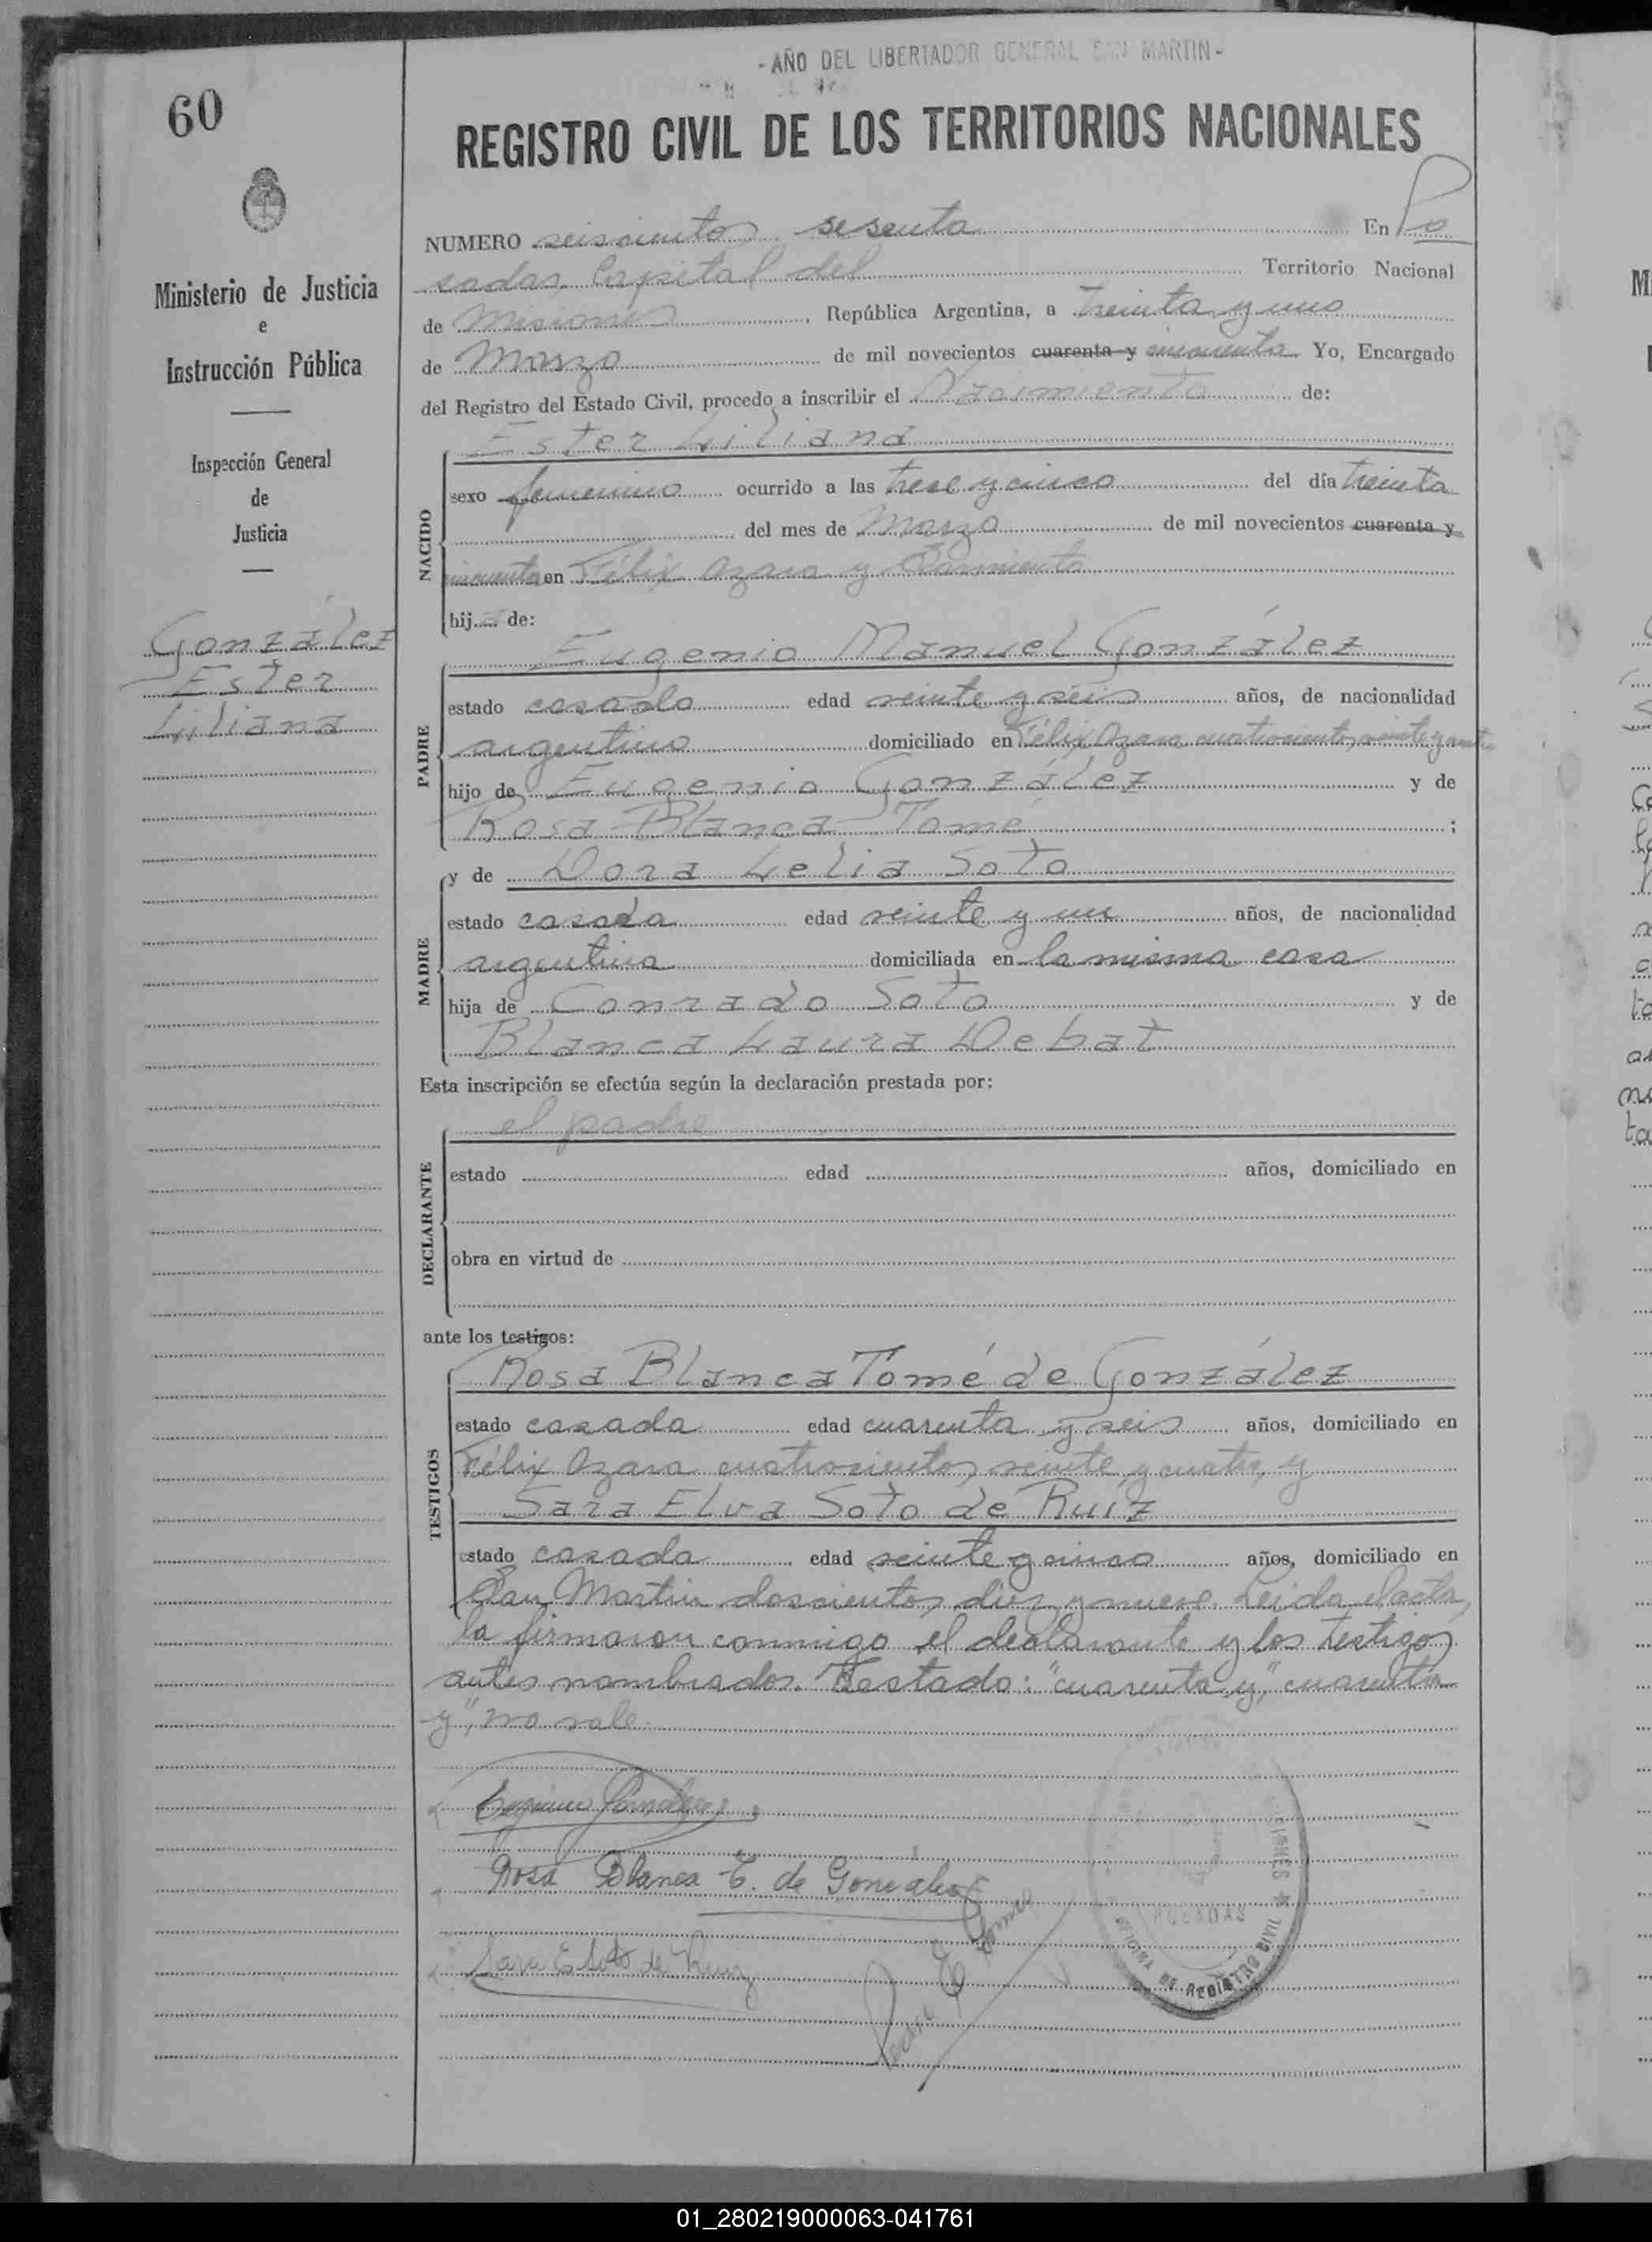 - AÑO DEL LIBERTADOR GENERAL SAN MARTIN -
60
REGISTRO CIVIL DE LOS TERRITORIOS NACIONALES
Ministerio de Justicia
e
Instrucción Pública
Inspección General
de
Justicia
González
Ester
Liliana
NUMERO seiscientos sesenta En Po
sadas, Capital del Territorio Nacional
de Misiones, República Argentina, a treinta y uno
de Marzo de mil novecientos cuarenta y cincuenta Yo, Encargado
del Registro del Estado Civil, procedo a inscribir el Nacimiento de:
NACIDO
Ester Liliana
sexo femenino ocurrido a las trece y cinco del día treinta
del mes de Marzo de mil novecientos cuarenta y
cincuenta en Félix Azara y Sarmiento
hija de:
PADRE
Eugenio Manuel González
estado casado edad veinte y seis años, de nacionalidad
argentino domiciliado en Félix Azara cuatrocientos veinte y cuatro
hijo de Eugenio González y de
Rosa Blanca Tomé;
MADRE
y de Dora Lelia Soto
estado casada edad veinte y un años, de nacionalidad
argentina domiciliada en la misma casa
hija de Conrado Soto y de
Blanca Laura Debat
Esta inscripción se efectúa según la declaración prestada por:
DECLARANTE
el padre
estado edad años, domiciliado en
obra en virtud de
ante los testigos:
TESTIGOS
Rosa Blanca Tomé de González
estado casada edad cuarenta y seis años, domiciliado en
Félix Azara cuatrocientos veinte y cuatro, y
Sara Elva Soto de Ruíz
estado casada edad veinte y cinco años, domiciliado en
San Martin doscientos diez y nueve. Leida el acta,
la firmaron conmigo el declarante y los testigos
antes nombrados. Testado: "cuarenta y", "cuarenta
y", no vale.
Rosa Blanca T. de González
Sara E Soto de Ruiz
POSADAS
OFICINA DE REGISTRO CIVIL ★ MISIONES
01_280219000063-041761